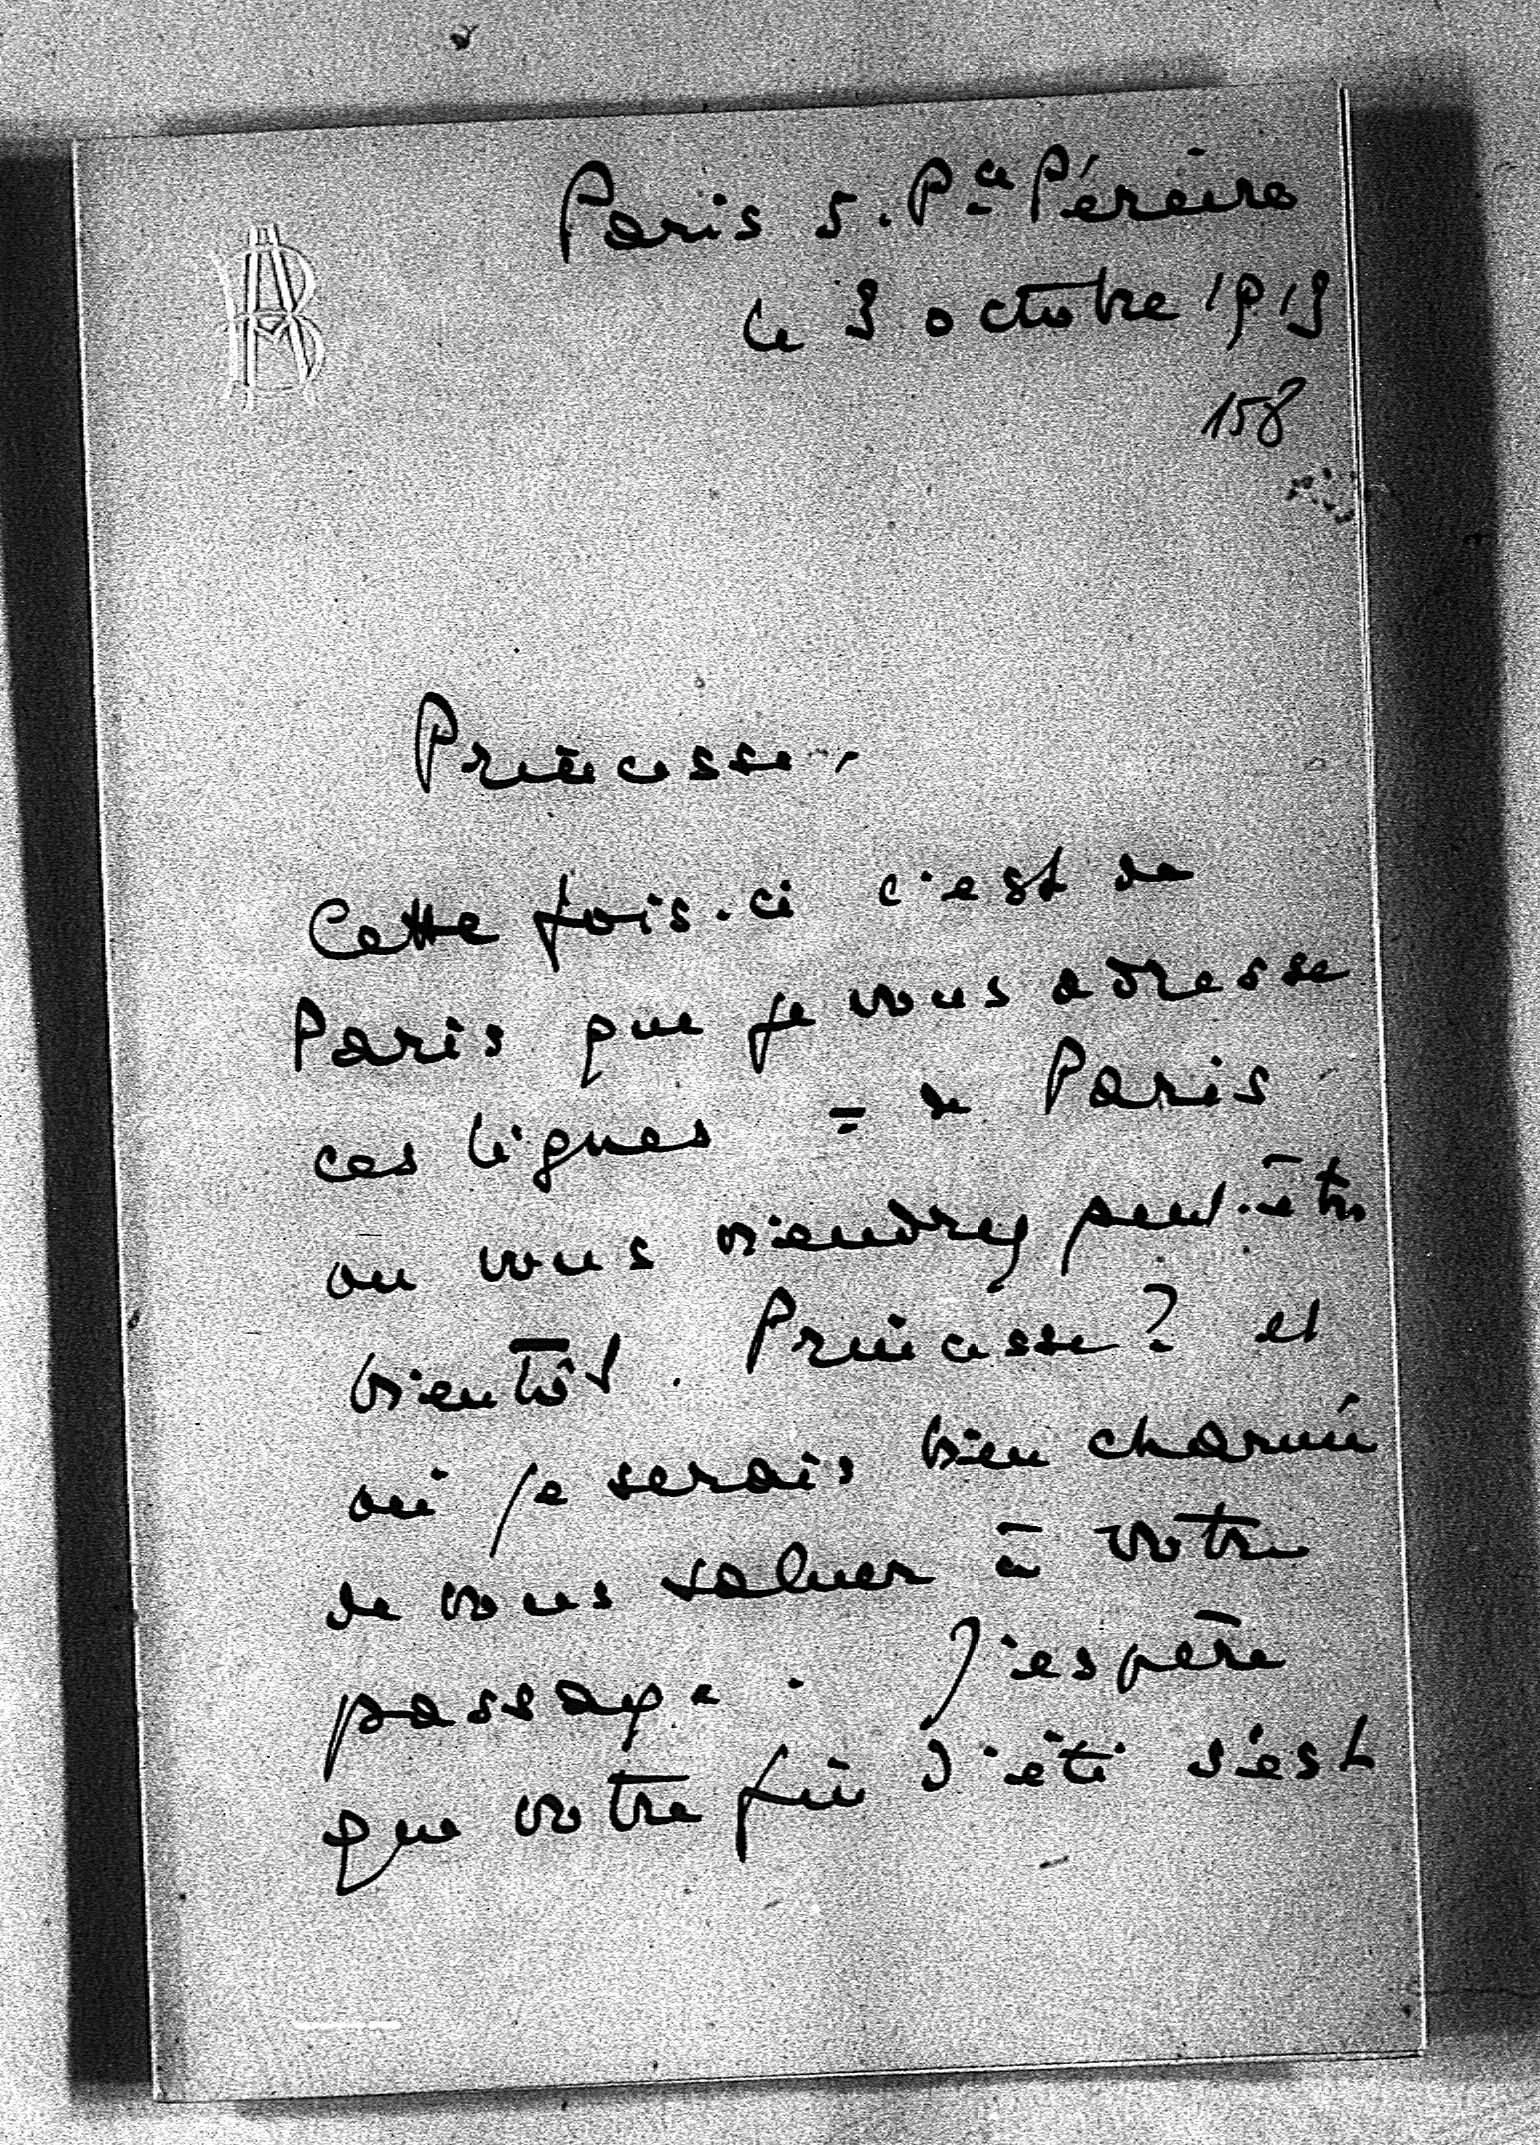 Paris 5. Pce Péreire
le 3 octobre 1913
158
Princesse,
Cette fois-ci c'est de
Paris que je vous adresse
ces lignes = de Paris
ou vous viendrez peut-être
bientôt. Princesse? et
où je serais bien charmé
de vous saluer à votre
passage. J'espère
que votre fin d'été s'est